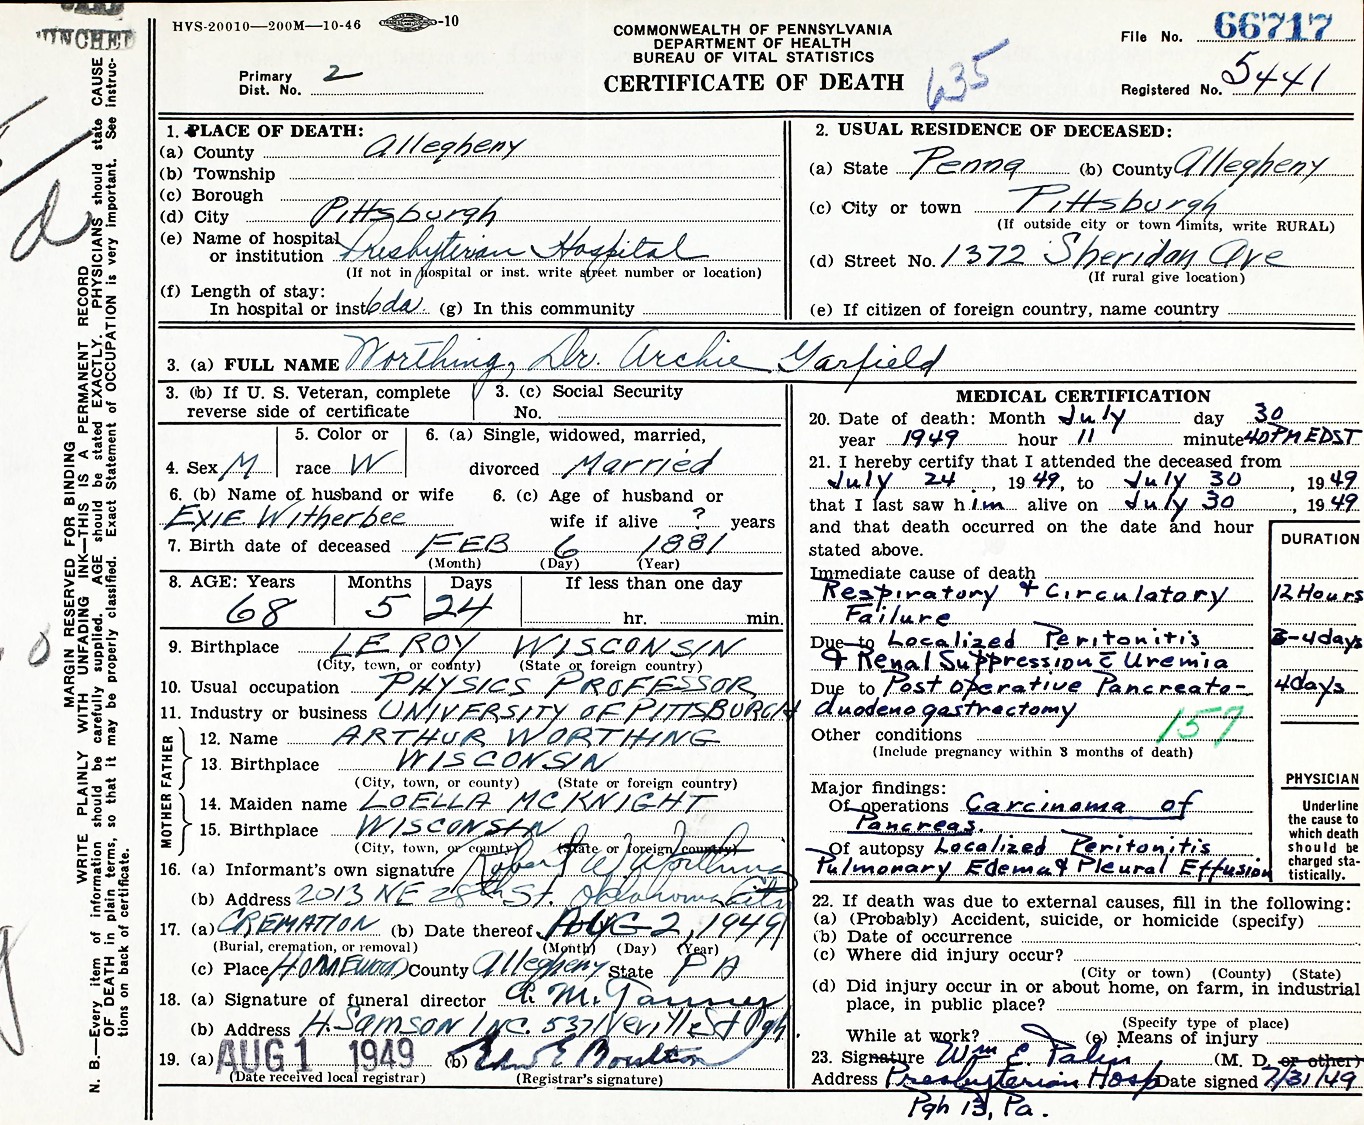 HVS-20010—200M—10-46 -10
COMMONWEALTH OF PENNSYLVANIA
DEPARTMENT OF HEALTH
BUREAU OF VITAL STATISTICS
CERTIFICATE OF DEATH
635
File No. 66717
Registered No. 5441
Primary Dist. No. 2
MARGIN RESERVED FOR BINDING
WRITE PLAINLY WITH UNFADING INK—THIS IS A PERMANENT RECORD
N. B.—Every item of information should be carefully supplied. AGE should be stated EXACTLY. PHYSICIANS should state CAUSE
OF DEATH in plain terms, so that it may be properly classified. Exact Statement of OCCUPATION is very important. See instruc-
tions on back of certificate.
1. PLACE OF DEATH:
(a) County Allegheny
(b) Township
(c) Borough
(d) City Pittsburgh
(e) Name of hospital
or institution Presbyterian Hospital
(If not in hospital or inst. write street number or location)
(f) Length of stay:
In hospital or inst. 6da. (g) In this community
2. USUAL RESIDENCE OF DECEASED:
(a) State Penna (b) County Allegheny
(c) City or town Pittsburgh
(If outside city or town limits, write RURAL)
(d) Street No. 1372 Sheridan Ave
(If rural give location)
(e) If citizen of foreign country, name country
3. (a) FULL NAME Worthing, Dr. Archie Garfield
3. (b) If U. S. Veteran, complete
reverse side of certificate
3. (c) Social Security
No.
4. Sex M
5. Color or
race W
6. (a) Single, widowed, married,
divorced Married
6. (b) Name of husband or wife
Exie Witherbee
6. (c) Age of husband or
wife if alive ? years
7. Birth date of deceased FEB 6 1881
(Month) (Day) (Year)
8. AGE: Years Months Days If less than one day
68 5 24 hr. min.
9. Birthplace LE ROY WISCONSIN
(City, town, or county) (State or foreign country)
10. Usual occupation PHYSICS PROFESSOR
11. Industry or business UNIVERSITY OF PITTSBURGH
FATHER
12. Name ARTHUR WORTHING
13. Birthplace WISCONSIN
(City, town, or county) (State or foreign country)
MOTHER
14. Maiden name LOELLA MCKNIGHT
15. Birthplace WISCONSIN
(City, town, or county) (State or foreign country)
16. (a) Informant's own signature Robert W Worthing
(b) Address 2013 NE 28th St. Oklahoma City
17. (a) CREMATION (b) Date thereof AUG-2, 1949
(Burial, cremation, or removal) (Month) (Day) (Year)
(c) Place HOMEWOOD County Allegheny State PA
18. (a) Signature of funeral director M. Tanner
(b) Address H. SAMSON INC. 537 Neville St Pgh.
19. (a) AUG 1 1949 (b) E Boulton
(Date received local registrar) (Registrar's signature)
MEDICAL CERTIFICATION
20. Date of death: Month July day 30
year 1949 hour 11 minute 40 PM EDST
21. I hereby certify that I attended the deceased from
July 24, 1949, to July 30, 1949
that I last saw him alive on July 30, 1949
and that death occurred on the date and hour
stated above.
DURATION
Immediate cause of death
Respiratory & Circulatory 12 Hours
Failure
Due to Localized Peritonitis 3-4 days
& Renal Suppression c̄ Uremia
Due to Post operative Pancreato- 4 days
duodenogastrectomy
Other conditions 157
(Include pregnancy within 3 months of death)
Major findings:
Of operations Carcinoma of
Pancreas.
Of autopsy Localized Peritonitis
Pulmonary Edema & Pleural Effusion
PHYSICIAN
Underline
the cause to
which death
should be
charged sta-
tistically.
22. If death was due to external causes, fill in the following:
(a) (Probably) Accident, suicide, or homicide (specify)
(b) Date of occurrence
(c) Where did injury occur?
(City or town) (County) (State)
(d) Did injury occur in or about home, on farm, in industrial
place, in public place?
(Specify type of place)
While at work? (e) Means of injury
23. Signature Wm E Palin (M. D. or other)
Address Presbyterian Hosp Date signed 7/31/49
Pgh 13, Pa.